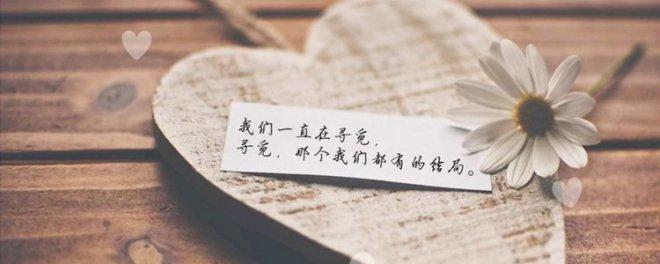 我们一直在寻觅，
寻觅，那个我们都有的结局。